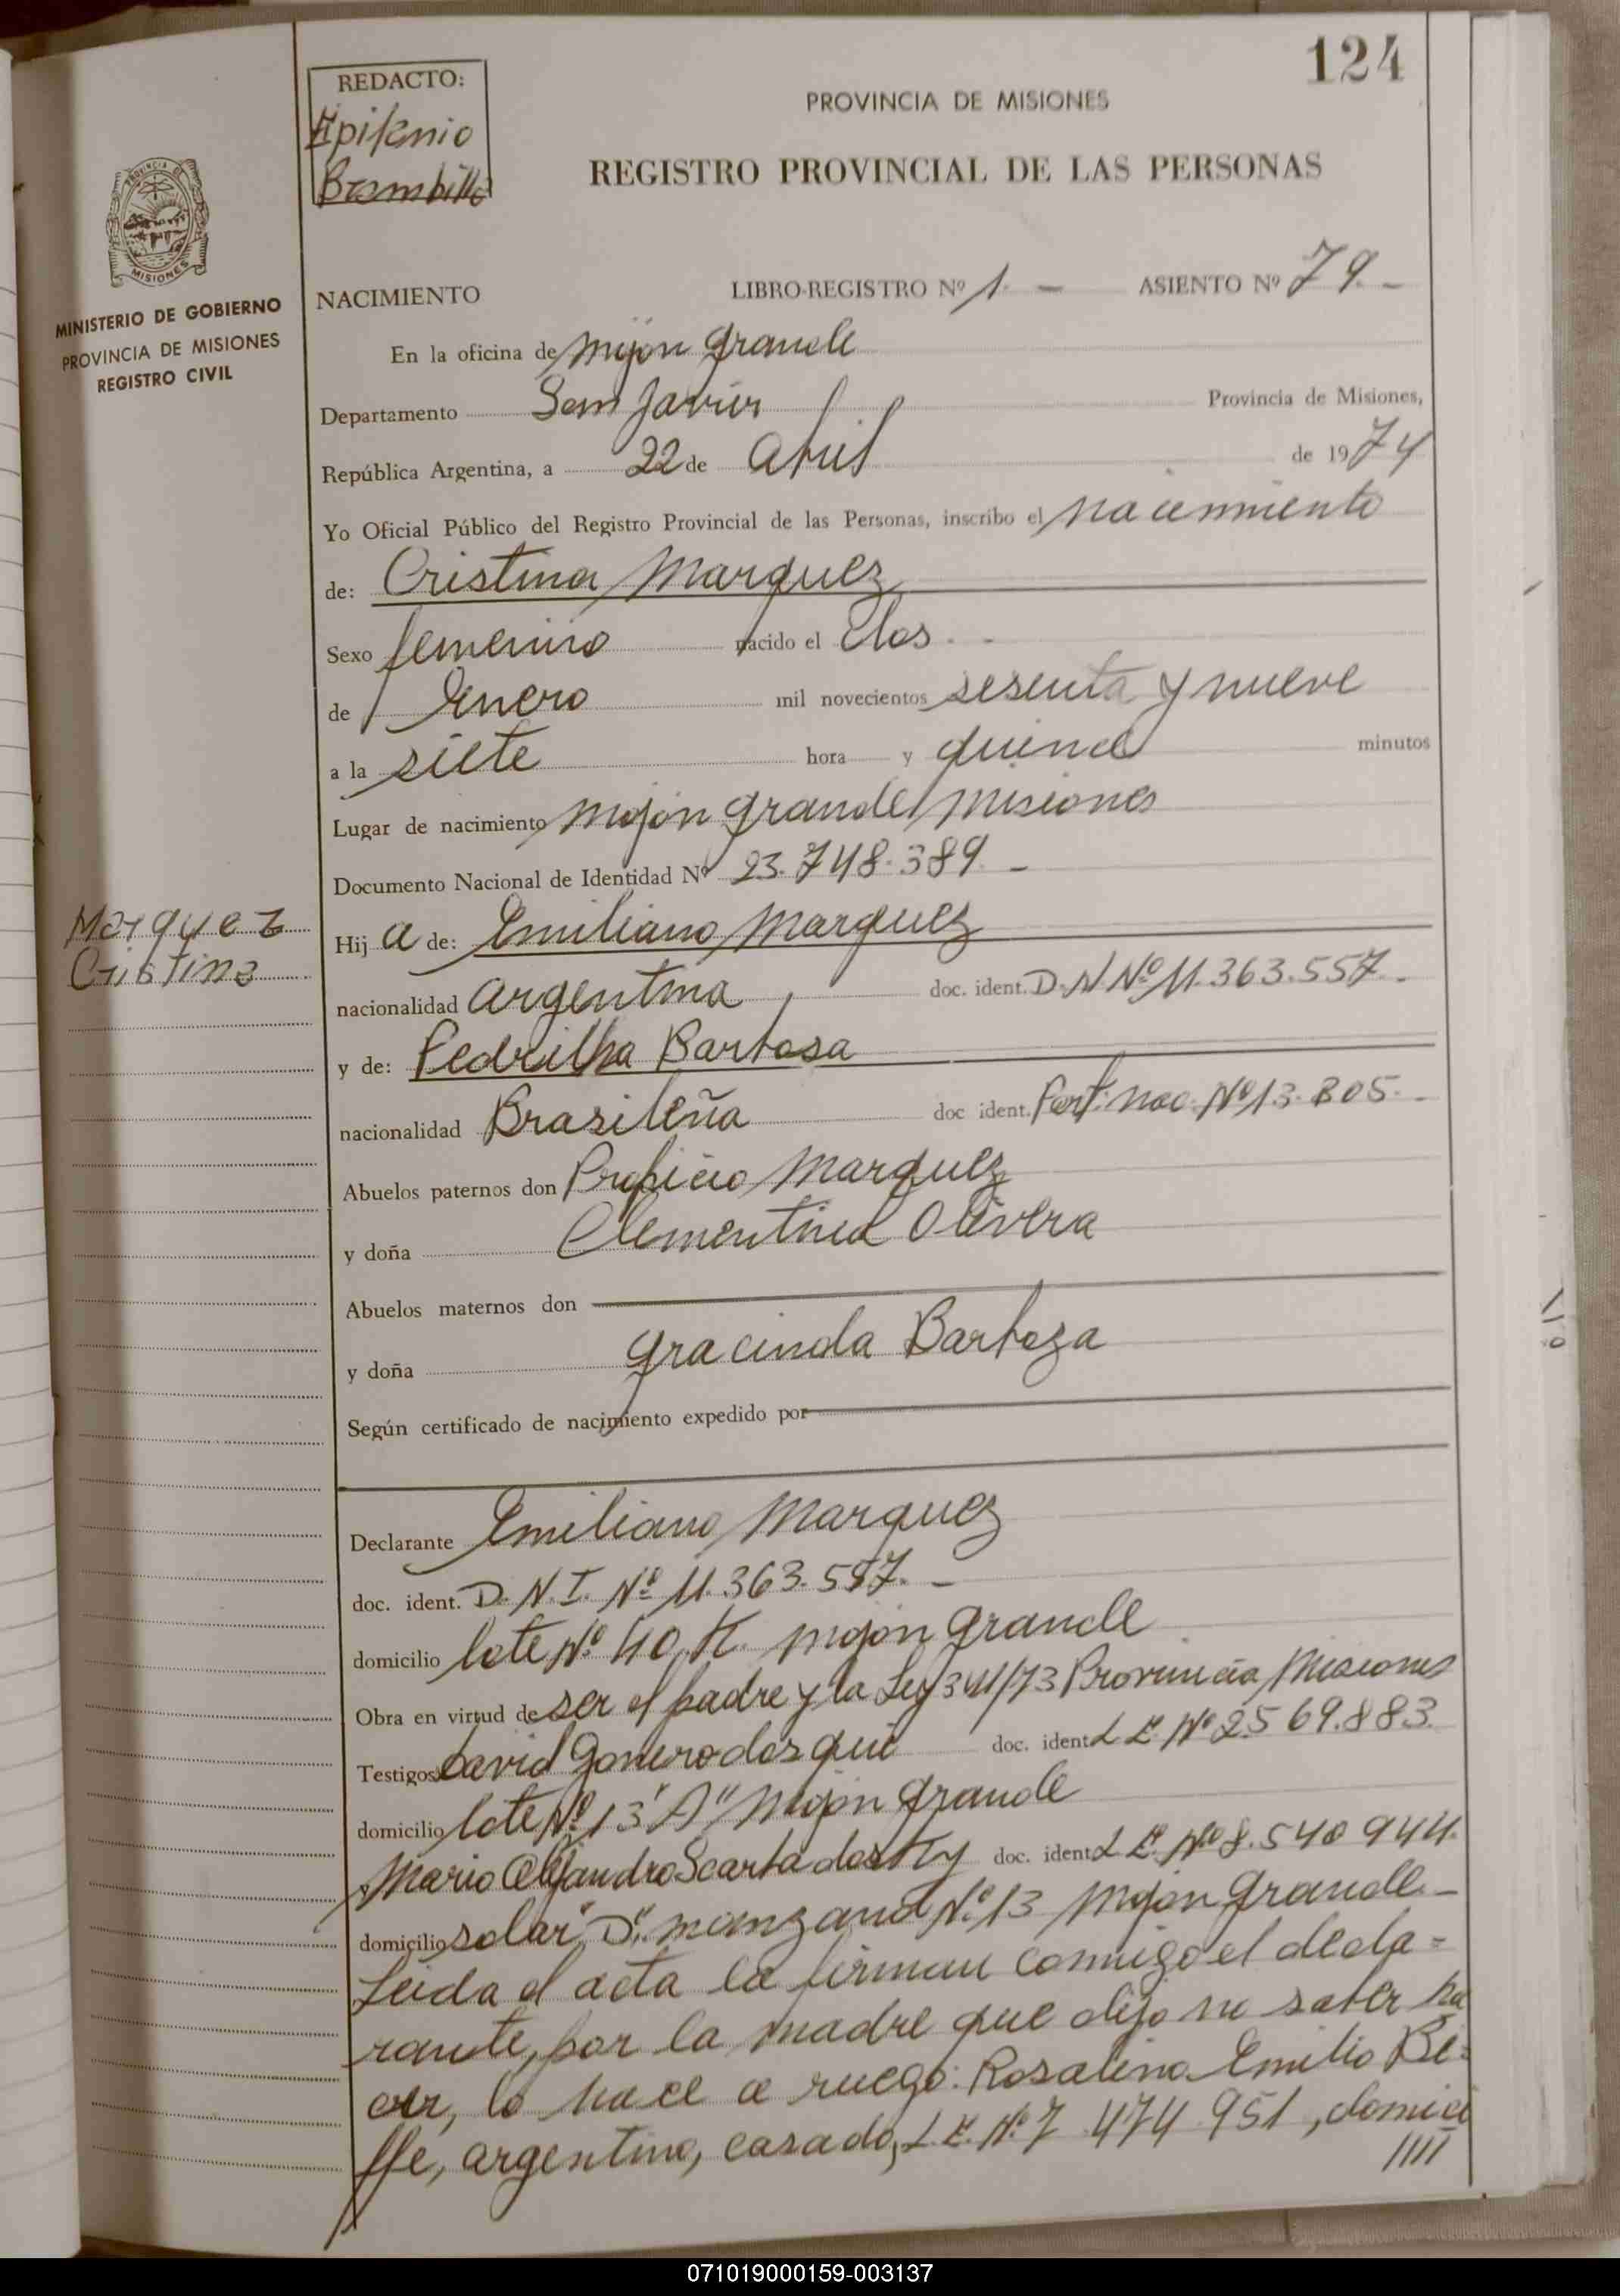 124
REDACTO:
Epifanio
Brambilla
PROVINCIA DE MISIONES
REGISTRO PROVINCIAL DE LAS PERSONAS
PROVINCIA DE
MISIONES
MINISTERIO DE GOBIERNO
PROVINCIA DE MISIONES
REGISTRO CIVIL
NACIMIENTO LIBRO-REGISTRO Nº 1. - ASIENTO Nº 79. -
En la oficina de Mojon Grande
Departamento San Javier Provincia de Misiones,
República Argentina, a 22 de Abril de 1974
Yo Oficial Público del Registro Provincial de las Personas, inscribo el nacimiento
de: Cristina Marquez
Sexo femenino nacido el dos - -
de Enero mil novecientos sesenta y nueve
a la siete hora y quince minutos
Lugar de nacimiento Mojon Grande Misiones
Documento Nacional de Identidad Nº 23.748.389. -
Marquez
Cristina
Hij a de: Emiliano Marquez
nacionalidad argentina doc. ident. D.N Nº 11.363.557. -
y de: Pedrilha Barbosa
nacionalidad Brasileña doc ident. Part. nac. Nº 13.805. -
Abuelos paternos don Marquez
y doña Clementina Olivera
Abuelos maternos don
y doña Gracinda Barboza
Según certificado de nacimiento expedido por
Declarante Emiliano Marquez
doc. ident. D.N.I. Nº 11.363.557. -
domicilio lote Nº 40 K. Mojon Grande
Obra en virtud de ser el padre y la Ley 341/73 Provincia Misiones
Testigos David dos que doc. ident L E. Nº 2.569.883.
domicilio lote Nº 13 "A" Mojon Grande
Mario Alejandro doc. ident L E. Nº 8.540 944.
domicilio solar "D" manzana Nº 13 Mojon Grande. -
Leida el acta la firman conmigo el decla=
rante, por la madre que dijo no saber ha
cer, lo hace a ruego: Rosalino Emilio Be=
ffe, argentino, casado, L.E. Nº 7.474.951, domici
////
071019000159-003137